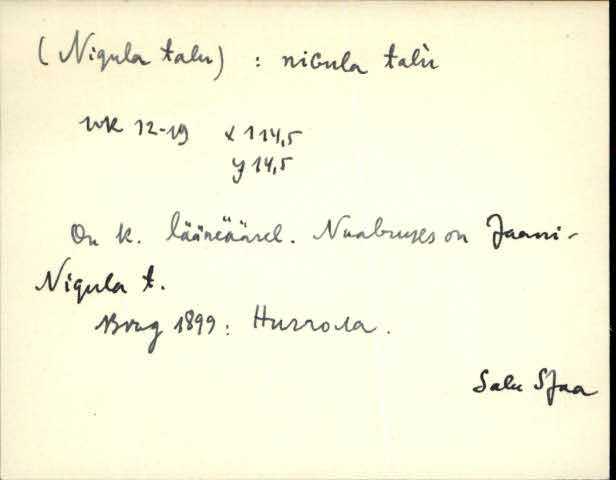 (Nigula talu) : niGula talù
wk 12-19 x 114,5
y 14,5
On k. lääneäärel. Naabruses on Jaani-
Nigula t.
1899: Нигола.
Salu